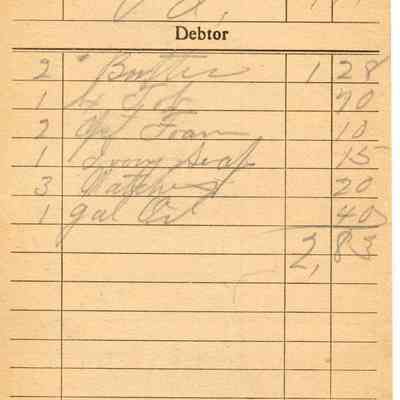 Debtor
2 " Butter 1 28
1 70
2 Foam 10
1 Ivory Soap 15
3 Matches 20
1 gal Oil 40
2,83